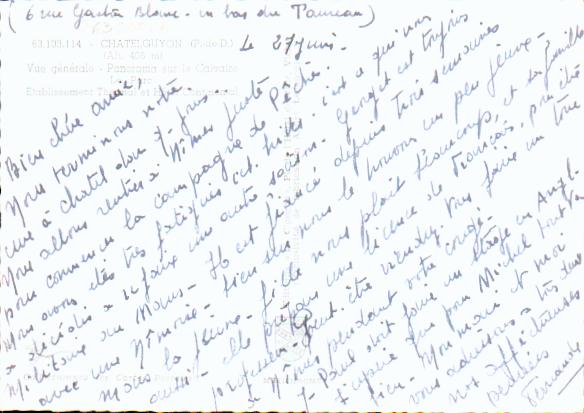 (6 rue Gaston Blanc - un bas du Taureau)
63.103.114 - CHATELGUYON (P.-de-D.)
(Alt. 405 m)
Vue générale - Panorama sur le Calvaire
Etablissement Thermal et
Le 27 Juin -
Bien chère amie!
Nous terminons notre
cure à Chatel dans 4 jours
Nous allons rentrer à Nîmes juste
pour commencer la campagne de Pêche.
Nous avons été très fatigués cet hiver. c'est ce qui nous
a décidés à refaire une autre saison. Georges est toujours
Militaire au Mans - Il est fiancé depuis trois semaines
avec une Nîmoise - bien sûr nous le trouvons un peu jeune -
Mais la jeune fille nous plaît beaucoup, et sa famille
aussi - elle une licence de Français, pour être
professeur - Peut-être viendrez-vous faire un tour
à Nîmes pendant votre congé -
J- Paul doit faire un stage en Angl.
J'espère que pour Michel tout va
bien - Mon mari et moi
vous adressons à tous deux
nos affectueuses
pensées
Fernande